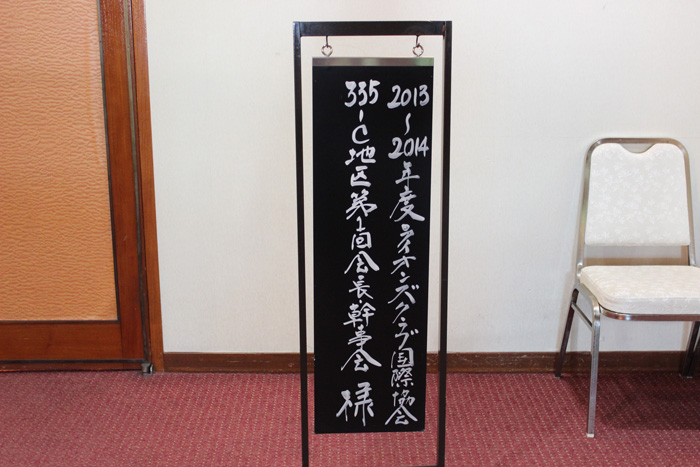 2013～2014年度ライオンズクラブ国際協会
335-C地区第1回会長幹事会 様